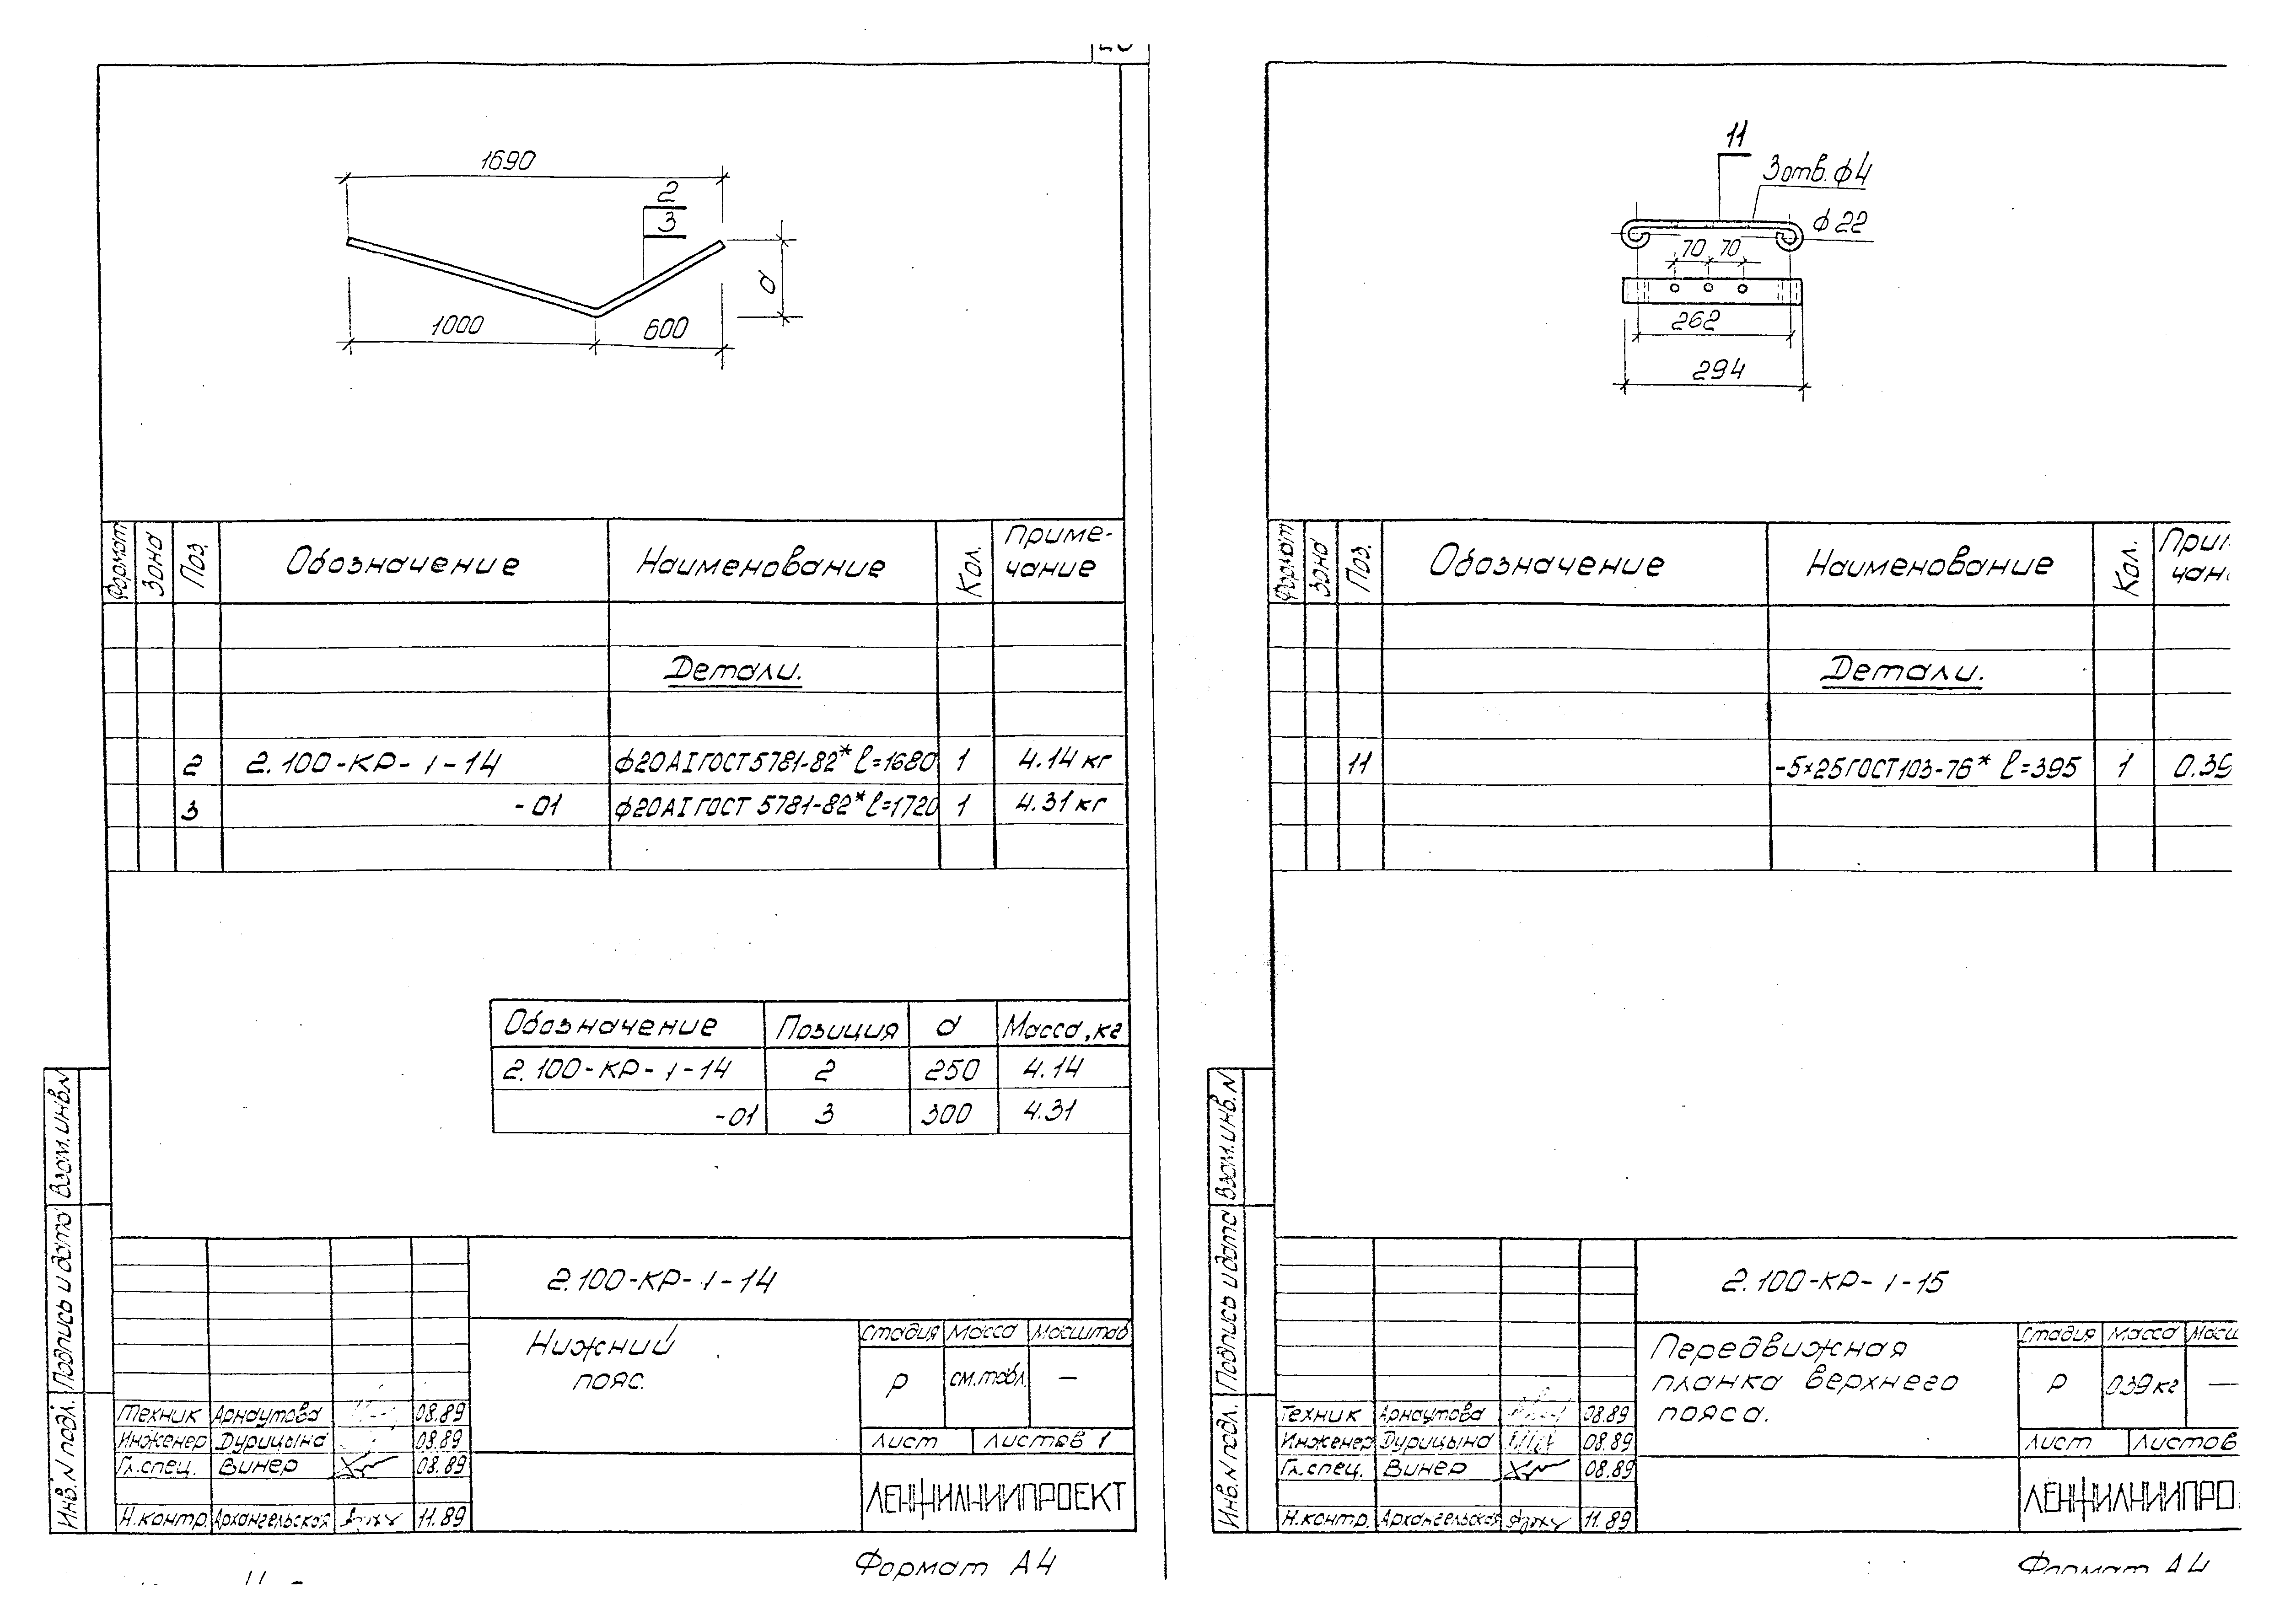 1690
2
3
d
1000
600
Формат
Зона
Поз.
Обозначение
Наименование
Кол.
Приме-
чание
Детали.
2 2.100-КР-1-14 ф20АI ГОСТ 5781-82* ℓ=1680 1 4.14 кг
3 -01 ф20АI ГОСТ 5781-82* ℓ=1720 1 4.31 кг
Обозначение Позиция d Масса, кг
2.100-КР-1-14 2 250 4.14
-01 3 300 4.31
Взам.инв.N
Подпись и дата
Инв.N подл.
2.100-КР-1-14
Нижний
пояс.
Стадия Масса Масштаб
Р см.табл. —
Лист Листов 1
Техник Арнаутова 08.89
Инженер Дурицына 08.89
Гл.спец. Винер 08.89
Н.контр. Архангельская 11.89
ЛЕНЖИЛНИИПРОЕКТ
Формат А4
11
3 отв. ф4
ф22
70 70
262
294
Формат
Зона
Поз.
Обозначение
Наименование
Кол.
При
чан
Детали.
11 -5×25 ГОСТ 103-76* ℓ=395 1 0.39
Взам.инв.N
Подпись и дата
Инв.N подл.
2.100-КР-1-15
Передвижная
планка верхнего
пояса.
Стадия Масса Масш
Р 0.39 кг —
Лист Листов
Техник Арнаутова 08.89
Инженер Дурицына 08.89
Гл.спец. Винер 08.89
Н.контр. Архангельская 11.89
ЛЕНЖИЛНИИПРО
Формат А4